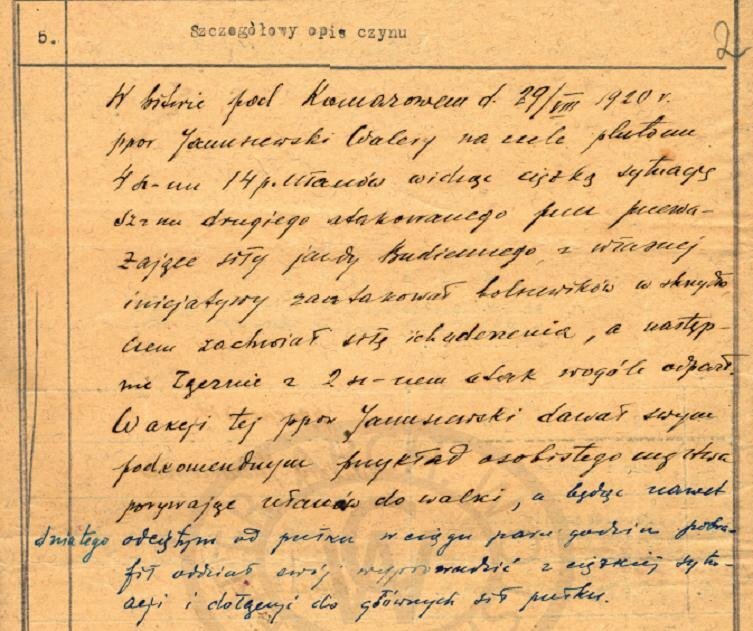 2
5. Szczegółowy opis czynu
W bitwie pod Komarowem d. 29/VIII 1920 r.
ppor Januszewski Walery na czele plutonu
4 sz-nu 14 p. Ułanów widząc ciężką sytuację
sz-nu drugiego atakowanego przez przewa-
żające siły jazdy Budiennego, z własnej
inicjatywy zaatakował bolszewików w skrzydło
czem zachwiał siłę ich uderzenia, a następ-
nie łącznie z 2 sz-nem atak wogóle odparł.
W akcji tej ppor Januszewski dawał swym
podkomendnym przykład osobistego męstwa
porywając ułanów do walki, a będąc nawet
dniałego odciętym od pułku w ciągu paru godzin potra-
fił oddział swój wyprowadzić z ciężkiej sytu-
acji i dołączyć do głównych sił pułku.